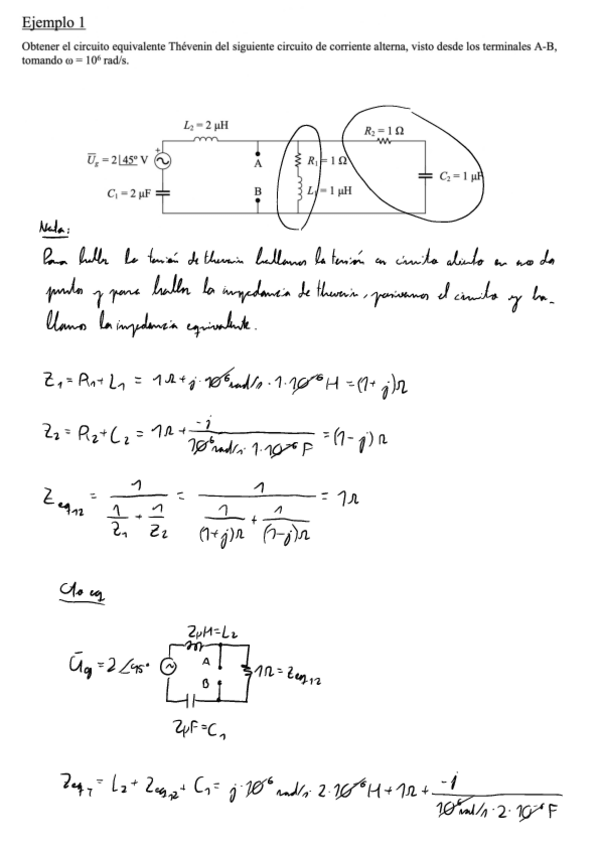 Ejemplo 1
Obtener el circuito equivalente Thévenin del siguiente circuito de corriente alterna, visto desde los terminales A-B,
tomando ω = 10⁶ rad/s.
L₂ = 2 μH
R₂ = 1 Ω
Ūg = 2∠45° V
A
R₁ = 1 Ω
C₂ = 1 μF
C₁ = 2 μF
B
L₁ = 1 μH
Nota:
Para hallar la tensión de thevenin hallamos la tensión en circuito abierto en dos
puntos y para hallar la impedancia de thevenin, el circuito y ha-
llamos la impedancia equivalente.
Z₁ = R₁ + L₁ = 1Ω + j·10⁶ rad/s · 1·10⁻⁶ H = (1+j)Ω
Z₂ = R₂ + C₂ = 1Ω + -j / (10⁶ rad/s · 1·10⁻⁶ F) = (1-j)Ω
Zeq₁₂ = 1 / (1/Z₁ + 1/Z₂) = 1 / (1/(1+j)Ω + 1/(1-j)Ω) = 1Ω
Cto eq
2μH = L₂
Ūg = 2∠45°
A
B
1Ω = Zeq₁₂
2μF = C₁
ZeqT = L₂ + Zeq₁₂ + C₁ = j·10⁶ rad/s · 2·10⁻⁶ H + 1Ω + -j / (10⁶ rad/s · 2·10⁻⁶ F)